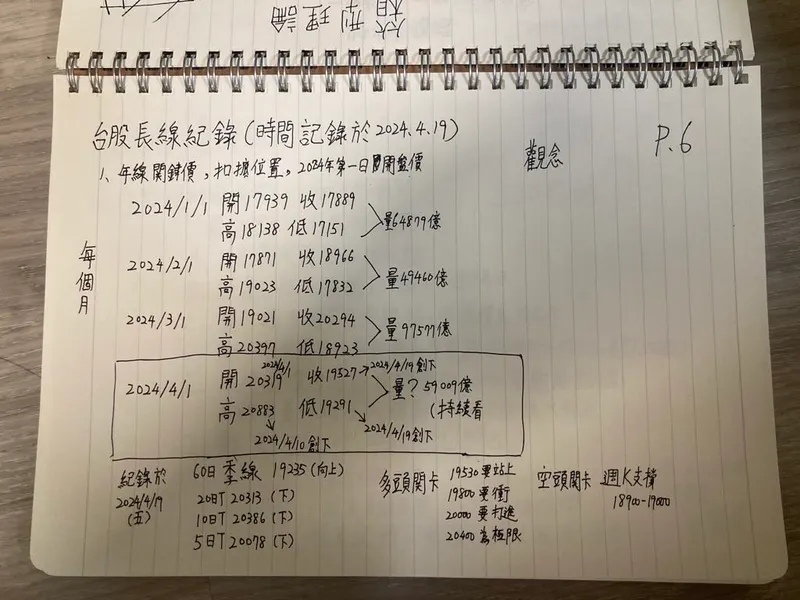 箱型理論
台股長線紀錄(時間記錄於2024.4.19)
觀念
P.6
1、年線關鍵價,扣抵位置,2024年第一日開盤價
每個月
2024/1/1 開17939 收17889
高18138 低17151
量64879億
2024/2/1 開17871 收18966
高19023 低17832
量49460億
2024/3/1 開19021 收20294
高20397 低18923
量97577億
2024/4/1
2024/4/1 開20319 收19527→2024/4/19創下
高20883 低19291
量?59009億
(持續看
2024/4/10創下
2024/4/19創下
紀錄於
2024/4/19
(五)
60日季線 19235(向上)
20日T 20313(下)
10日T 20386(下)
5日T 20078(下)
多頭關卡
19530要站上
19800要衝
20000要打進
20400為極限
空頭關卡 週K支撐
18900-19000